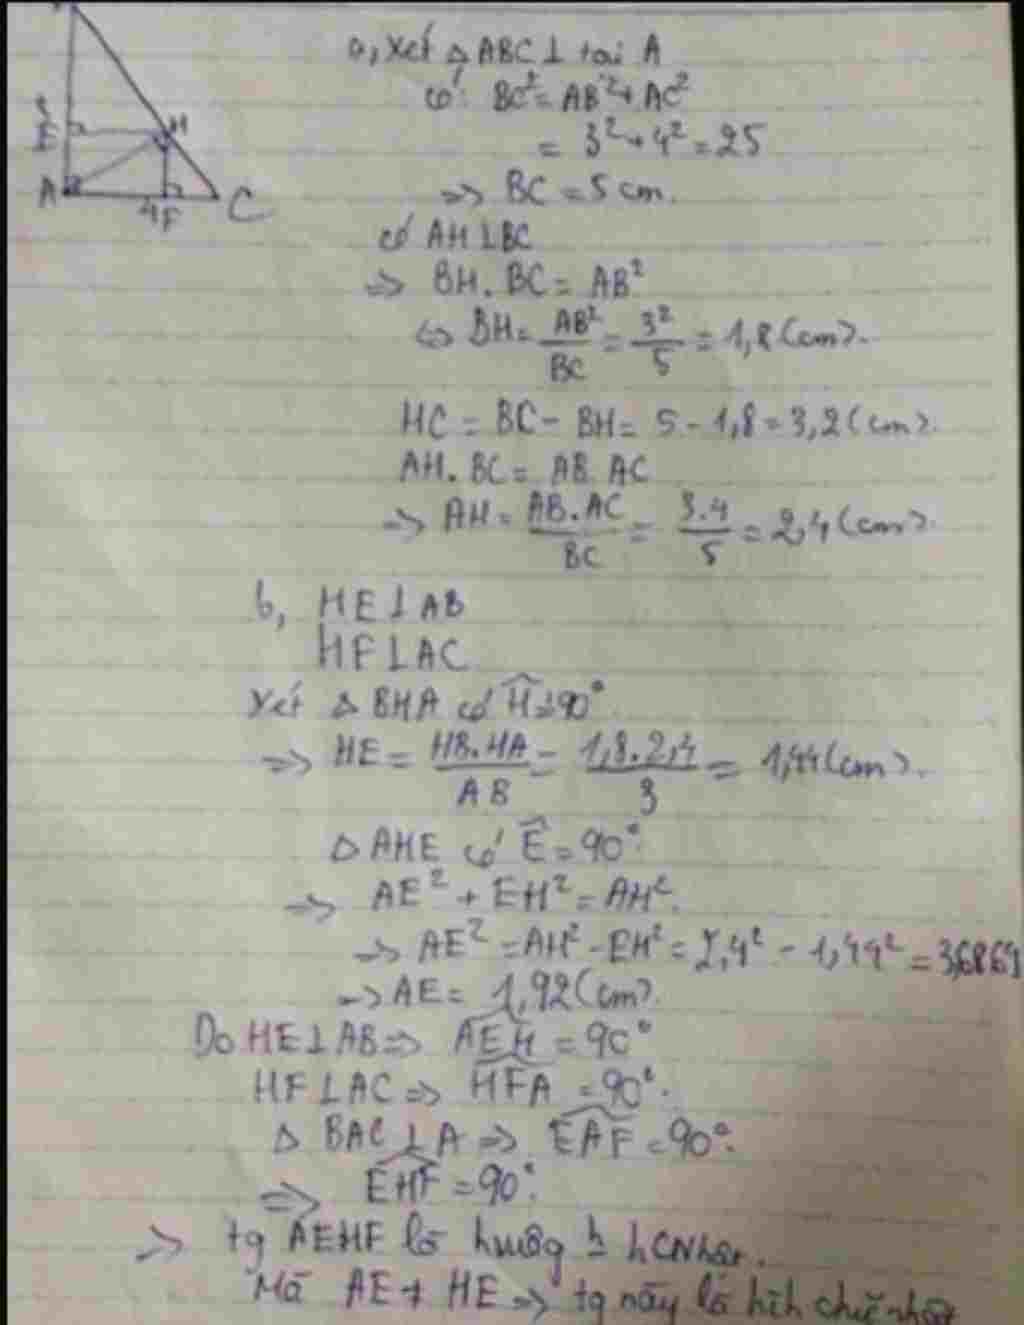 a, Xét △ABC ⊥ tại A
có BC² = AB² + AC²
= 3² + 4² = 25
=> BC = 5 cm.
có AH ⊥ BC
=> BH . BC = AB²
<=> BH = AB²/BC = 3²/5 = 1,8 (cm).
HC = BC - BH = 5 - 1,8 = 3,2 (cm).
AH . BC = AB . AC
=> AH = AB.AC/BC = 3.4/5 = 2,4 (cm)
b, HE ⊥ AB
HF ⊥ AC
Xét △ BHA có Ĥ = 90°
=> HE = HB.HA/AB = 1,8.2,4/3 = 1,44 (cm).
△ AHE có Ê = 90°
=> AE² + EH² = AH².
=> AE² = AH² - EH² = 2,4² - 1,44² = 3,6864
=> AE = 1,92 (cm).
Do HE ⊥ AB => AEH = 90°
HF ⊥ AC => HFA = 90°.
△ BAC ⊥ A => EAF = 90°.
=> EHF = 90°.
=> tg AEHF là
Mà AE ≠ HE => tg này là hìh chữ nhật
E
H
A
4
F
C